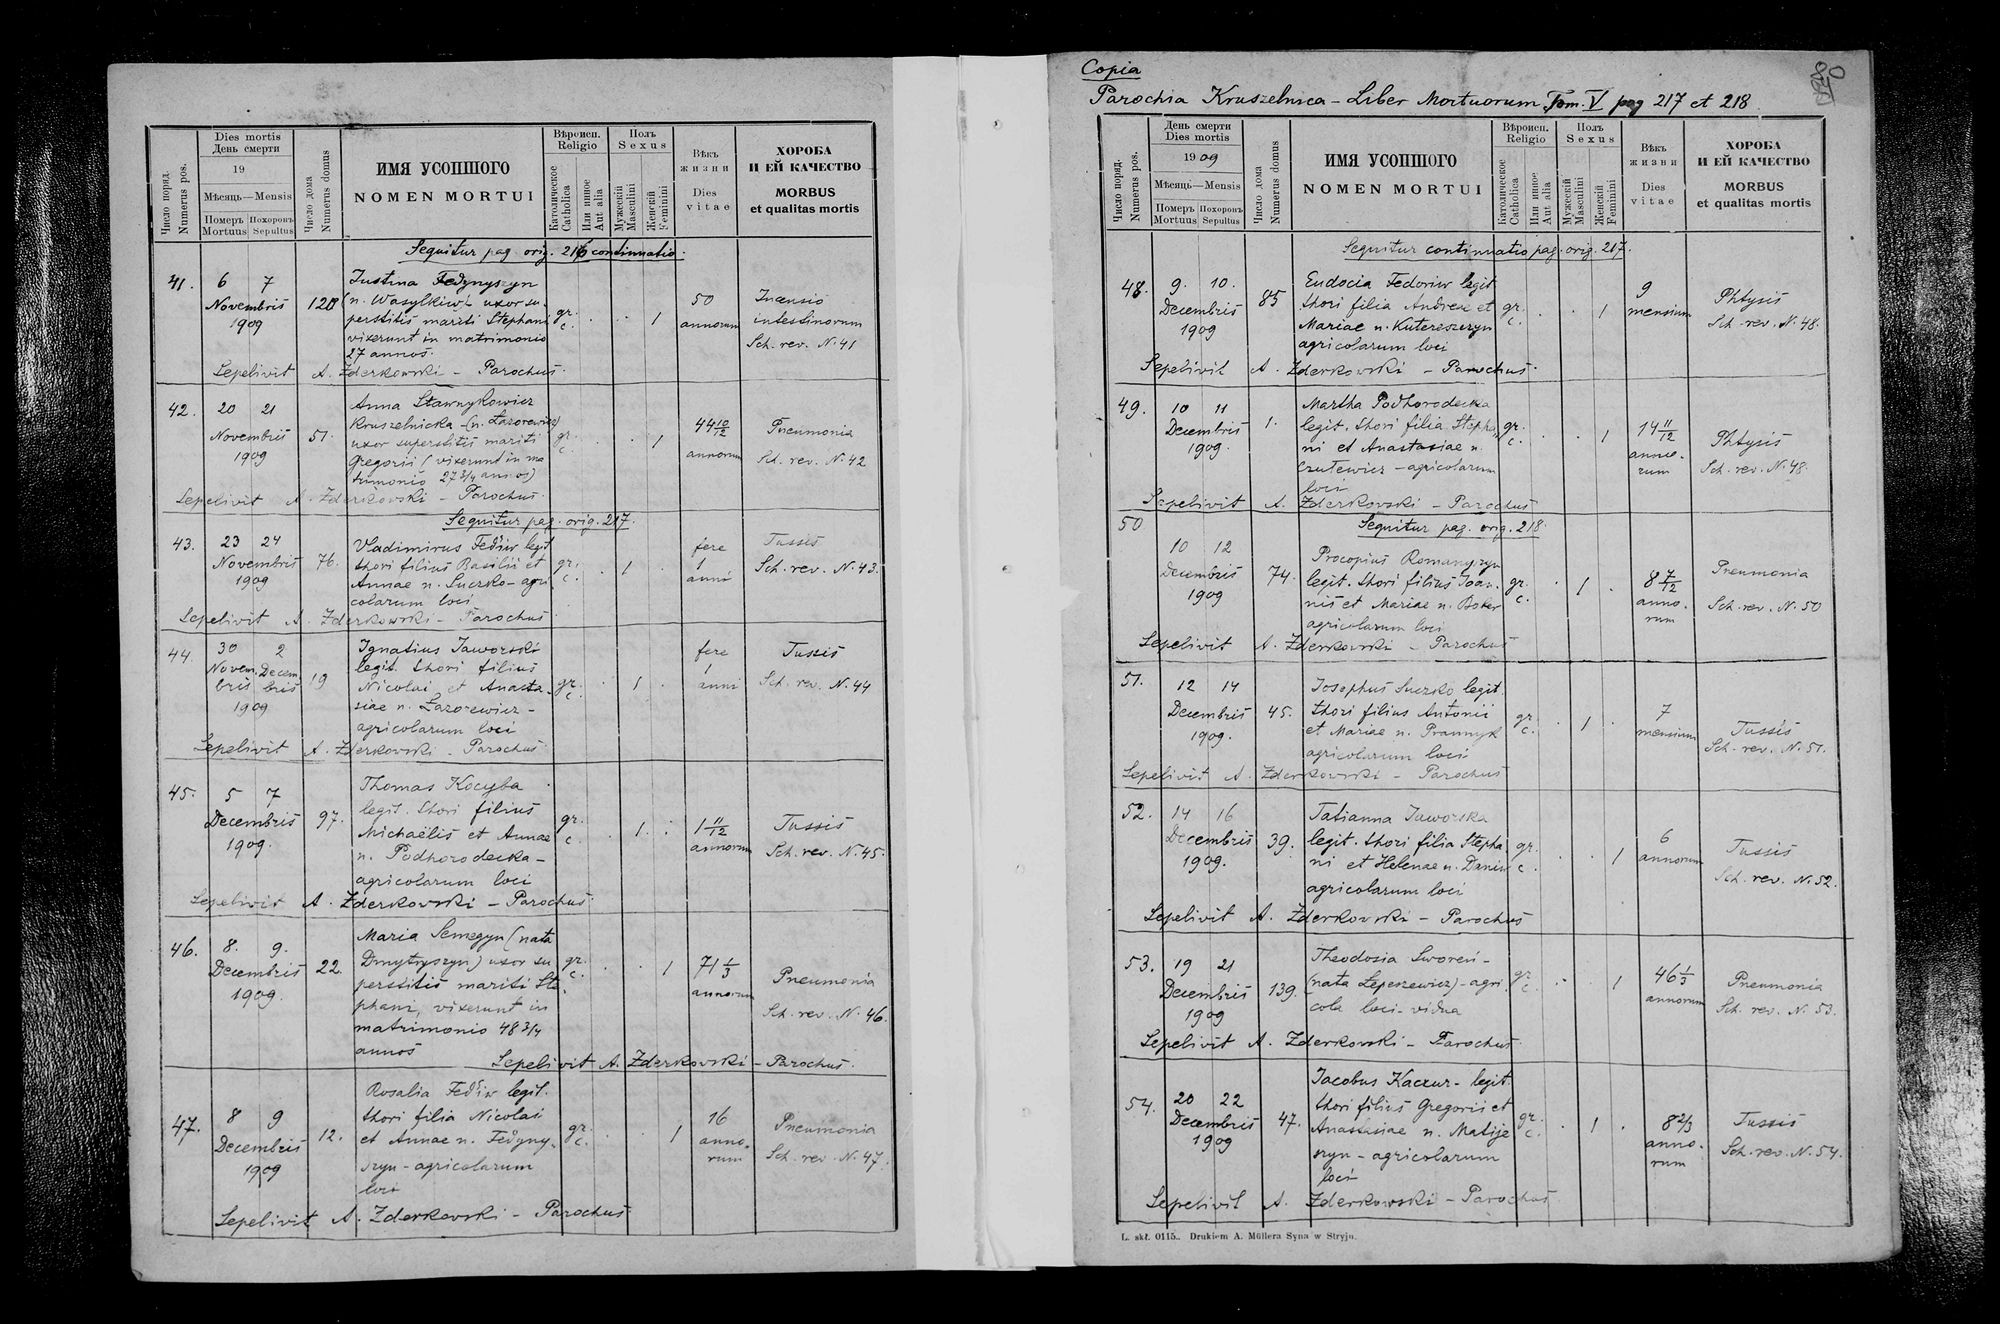 Число поряд.
Numerus pos.
Dies mortis
День смерти
19
Мѣсяць—Mensis
Померъ
Mortuus
Похоронъ
Sepultus
Число дома
Numerus domus
ИМЯ УСОПШОГО
NOMEN MORTUI
Вѣроисп.
Religio
Католическое
Catholica
Или инное
Aut alia
Полъ
Sexus
Мужескій
Masculini
Женскій
Feminini
Вѣкъ
жизни
Dies
vitae
ХОРОБА
И ЕЙ КАЧЕСТВО
MORBUS
et qualitas mortis
Sequitur pag. orig. 216 continuatio.
41. 6 7
Novembris
1909
120
Justina Fedynyszyn
(n. Wasylkiw) uxor su-
perstitis mariti Stephani
vixerunt in matrimonio
27 annos.
gr.
c.
1
50
annorum
Incensio
intestinorum
Sch. rev. N. 41
Sepelivit A. Zderkowski – Parochus.
42. 20 21
Novembris
1909
51.
Anna Sławnykowicz
Kruszelnicka – (n. Łazorewicz)
uxor superstitis mariti
Gregorii (vixerunt in ma
trimonio 27 3/4 annos)
gr.
c.
1
44 10/12
annorum
Pneumonia
Sch. rev. N. 42
Sepelivit A. Zderkowski – Parochus.
Sequitur pag. orig. 217.
43. 23 24
Novembris
1909
76.
Vladimirus Fediw legit.
thori filius Basilii et
Annae n. Suczko – agri
colarum loci
gr.
c.
1
fere
1
anni
Tussis
Sch. rev. N. 43.
Sepelivit A. Zderkowski – Parochus.
44. 30 2
Novem- Decem
bris bris
1909
19
Ignatius Jaworski
legit. thori filius
Nicolai et Anasta-
siae n. Łazorewicz –
agricolarum loci
gr.
c.
1
fere
1
anni
Tussis
Sch. rev. N. 44
Sepelivit A. Zderkowski – Parochus.
45. 5 7
Decembris
1909.
97.
Thomas Kocyba
legit. thori filius
Michaëlis et Annae
n. Podhorodecka –
agricolarum loci
gr.
c.
1
1 11/12
annorum
Tussis
Sch. rev. N. 45.
Sepelivit A. Zderkovski – Parochus.
46. 8. 9.
Decembris
1909.
22.
Maria Semegyn (nata
Dmytryszyn) uxor su
perstitis mariti Ste
phani, vixerunt in
matrimonio 48 3/4
annos
gr.
c.
1
71 1/3
annorum
Pneumonia
Sch. rev. N. 46.
Sepelivit A. Zderkovski – Parochus.
47. 8 9
Decembris
1909
12.
Rosalia Fediw legit.
thori filia Nicolai
et Annae n. Fedyny-
szyn – agricolarum
loci
gr.
c.
1
16
anno-
rum
Pneumonia
Sch. rev. N. 47.
Sepelivit A. Zderkovski – Parochus
Copia
80
Parochia Kruszelnica – Liber Mortuorum Tom. V pag 217 et 218.
Число поряд.
Numerus pos.
День смерти
Dies mortis
1909
Мѣсяць—Mensis
Померъ
Mortuus
Похоронъ
Sepultus
Число дома
Numerus domus
ИМЯ УСОПШОГО
NOMEN MORTUI
Вѣроисп.
Religio
Католическое
Catholica
Или инное
Aut alia
Полъ
Sexus
Мужескій
Masculini
Женскій
Feminini
Вѣкъ
жизни
Dies
vitae
ХОРОБА
И ЕЙ КАЧЕСТВО
MORBUS
et qualitas mortis
Sequitur continuatio pag. orig. 217.
48. 9. 10.
Decembris
1909
85
Eudocia Fedoriw legit
thori filia Andreae et
Mariae n. Kutereszczyn
agricolarum loci
gr.
c.
1
9
mensium
Phtysis
Sch. rev. N. 48.
Sepelivit A. Zderkowski – Parochus.
49. 10 11
Decembris
1909.
1.
Martha Podhorodecka
legit. thori filia Stepha
ni et Anastasiae n.
Czulewicz – agricolarum
loci
gr.
c.
1
14 11/12
anno-
rum
Phtysis
Sch. rev. N. 48.
Sepelivit A. Zderkovski – Parochus
Sequitur pag. orig. 218
50
10 12
Decembris
1909
74.
Procopius Romanyszyn
legit. thori filius Joan-
nis et Mariae n. Bober
agricolarum loci
gr.
c.
1
8 7/12
anno-
rum
Pneumonia
Sch. rev. N. 50
Sepelivit A. Zderkovski – Parochus
51. 12 14
Decembris
1909.
45.
Josephus Suczko legit.
thori filius Antonii
et Mariae n. Prannyk
agricolarum loci
gr.
c.
1
7
mensium
Tussis
Sch. rev. N. 51.
Sepelivit A. Zderkovski – Parochus
52. 14 16
Decembris
1909.
39.
Tatianna Jaworska
legit. thori filia Stepha
ni et Helenae n. Daniw
agricolarum loci
gr.
c.
1
6
annorum
Tussis
Sch. rev. N. 52.
Sepelivit A. Zderkovski – Parochus
53. 19 21
Decembris
1909
139.
Theodosia Sworeń –
(nata Łepeszewicz) – agri
cola loci – vidua
gr.
c.
1
46 1/3
annorum
Pneumonia
Sch. rev. N. 53.
Sepelivit A. Zderkovski – Parochus.
54. 20 22
Decembris
1909
47.
Jacobus Kaczur – legit.
thori filius Gregorii et
Anastasiae n. Matije
szyn – agricolarum
loci
gr.
c.
1
8 2/3
anno-
rum
Tussis
Sch. rev. N. 54.
Sepelivit A. Zderkowski – Parochus
L. skł. 0115.. Drukiem A. Müllera Syna w Stryju.